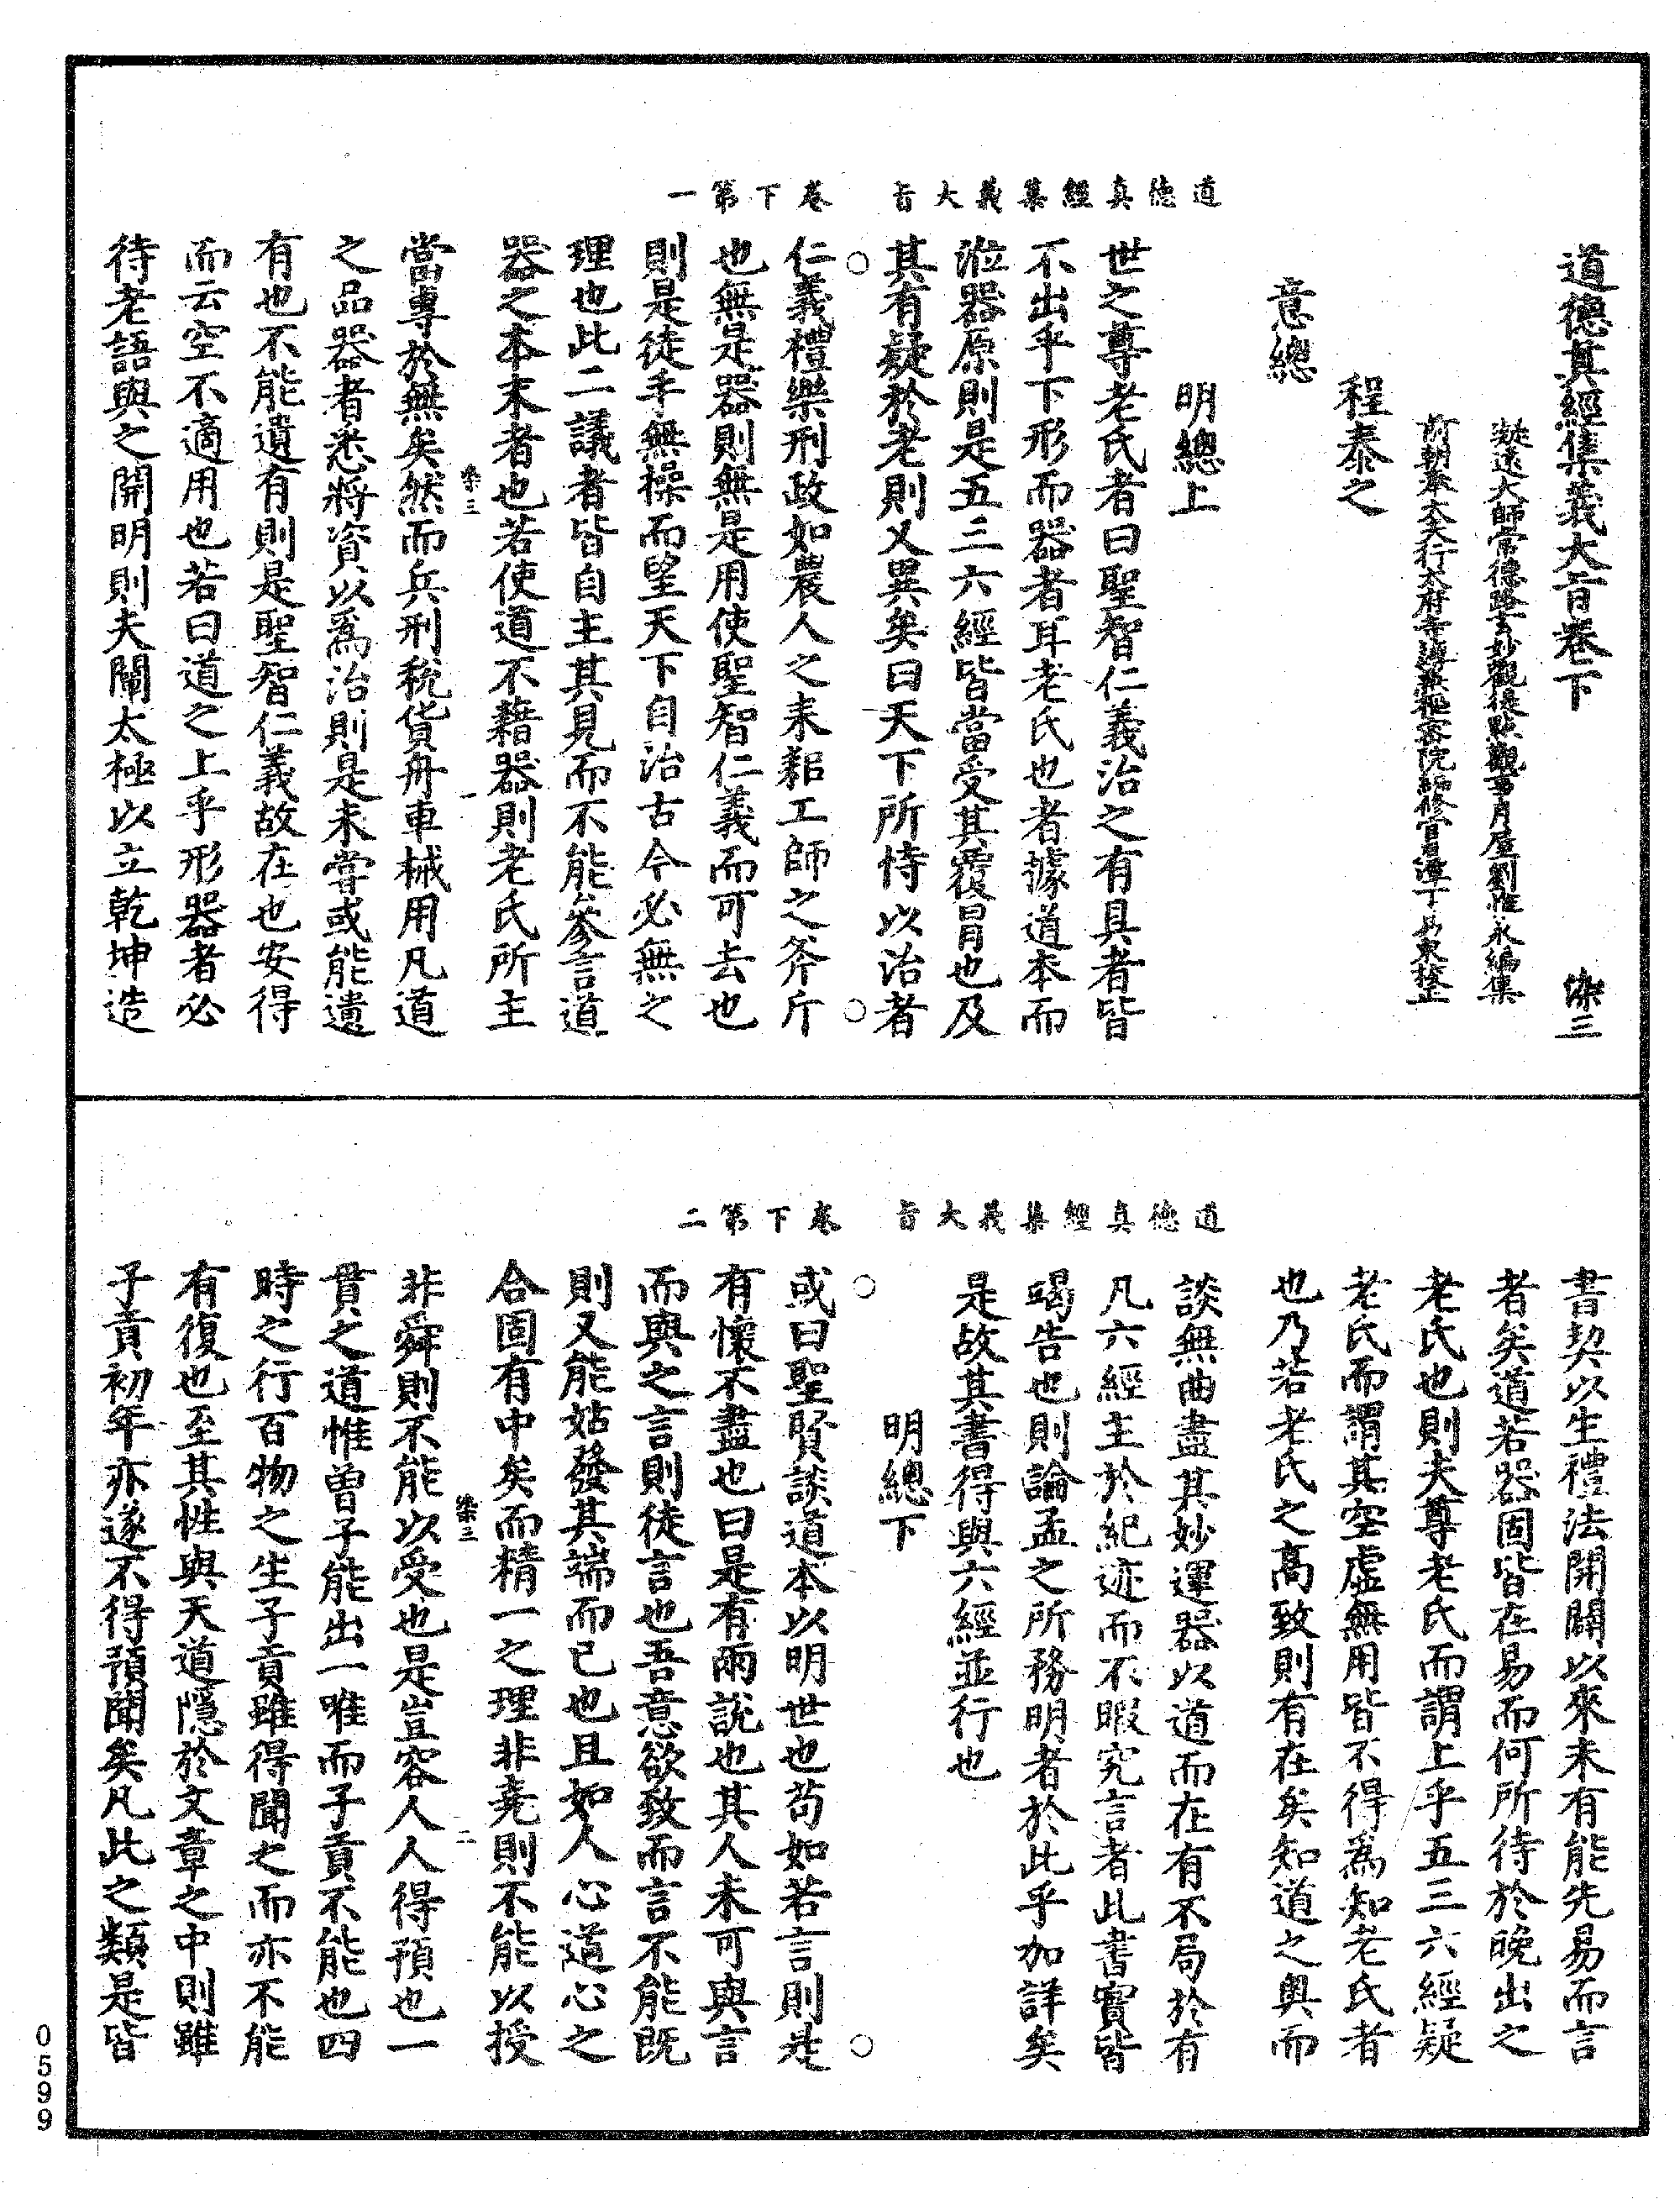 道德真經集義大旨卷下　染三
凝遠大師常德路玄妙觀提點觀事月屋劉惟永編集
前朝奉大夫行太府寺簿兼樞密院編修官石潭丁易東校正
程泰之
意總
明總上
世之尊老氏者曰聖智仁義治之有具者皆
不出乎下形而器者耳老氏也者據道本而
涖器原則是五三六經皆當受其覆冒也及
其有疑於老則又異矣曰天下所恃以治者
道德真經集義大旨　卷下第一
仁義禮樂刑政如農人之耒耜工師之斧斤
也無是器則無是用使聖智仁義而可去也
則是徒手無操而望天下自治古今必無之
理也此二議者皆自主其見而不能參言道
器之本末者也若使道不藉器則老氏所主
染三　一
當專於無矣然而兵刑稅貨舟車械用凡道
之品器者悉將資以爲治則是未嘗或能遺
有也不能遺有則是聖智仁義故在也安得
而云空不適用也若曰道之上乎形器者必
待老語與之開明則夫闡太極以立乾坤造
書契以生禮法開闢以來未有能先易而言
者矣道若器固皆在易而何所待於晚出之
老氏也則夫尊老氏而謂上乎五三六經疑
老氏而謂其空虛無用皆不得爲知老氏者
也乃若老氏之高致則有在矣知道之奧而
談無曲盡其妙運器以道而在有不局於有
凡六經主於紀迹而不暇究言者此書實皆
竭告也則論孟之所務明者於此乎加詳矣
是故其書得與六經並行也
明總下
道德真經集義大旨　卷下第二
或曰聖賢談道本以明世也苟如若言則是
有懷不盡也曰是有兩說也其人未可與言
而與之言則徒言也吾意欲致而言不能既
則又能姑發其端而已也且如人心道心之
合固有中矣而精一之理非堯則不能以授
染三　二
非舜則不能以受也是豈容人人得預也一
貫之道惟曾子能出一唯而子貢不能也四
時之行百物之生子貢雖得聞之而亦不能
有復也至其性與天道隱於文章之中則雖
子貢初年亦遂不得預聞矣凡此之類是皆
0599